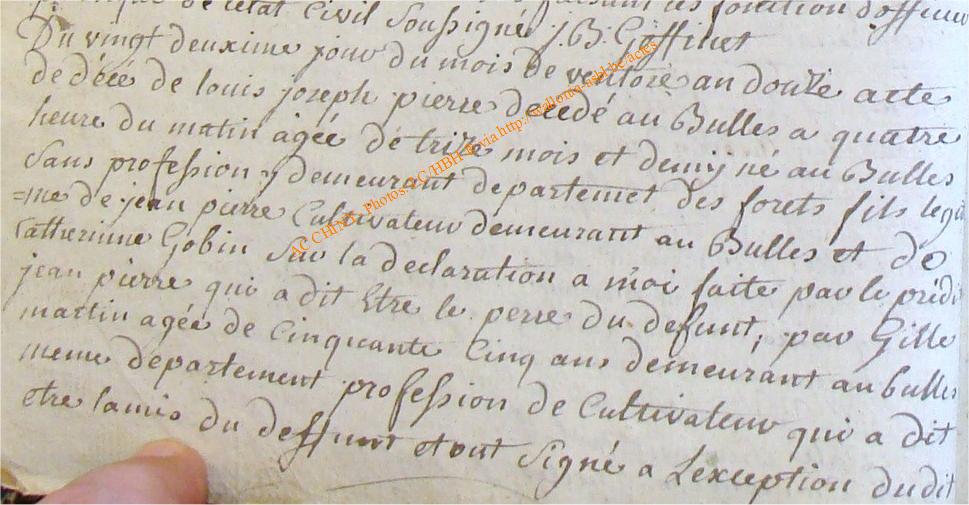 de l'état Civil Soussigné J.B. Goffinet
Du vingt deuxime jour du mois de ventore an douze acte
de décé de louis joseph pierre decedé au Bulles a quatre
heure du matin agée de trize mois et demij né au Bulles
Sans profession y demeurant departemet des forets fils legit
=me de jean pierre Cultivateur demeurant au Bulles et de
Catherinne Gobin Sur la declaration a moi faite par le prédi
jean pierre qui a dit Etre le perre du defunt, par Gille
martin agée de Cinquante Cinq ans demeurant au bulles
meme departement profession de Cultivateur qui a dit
etre lamis du deffunt et ont Signé a L'exception dudit
AC CHINY, Photos: SC/HBH © via http://wallonia-asbl.be/actes